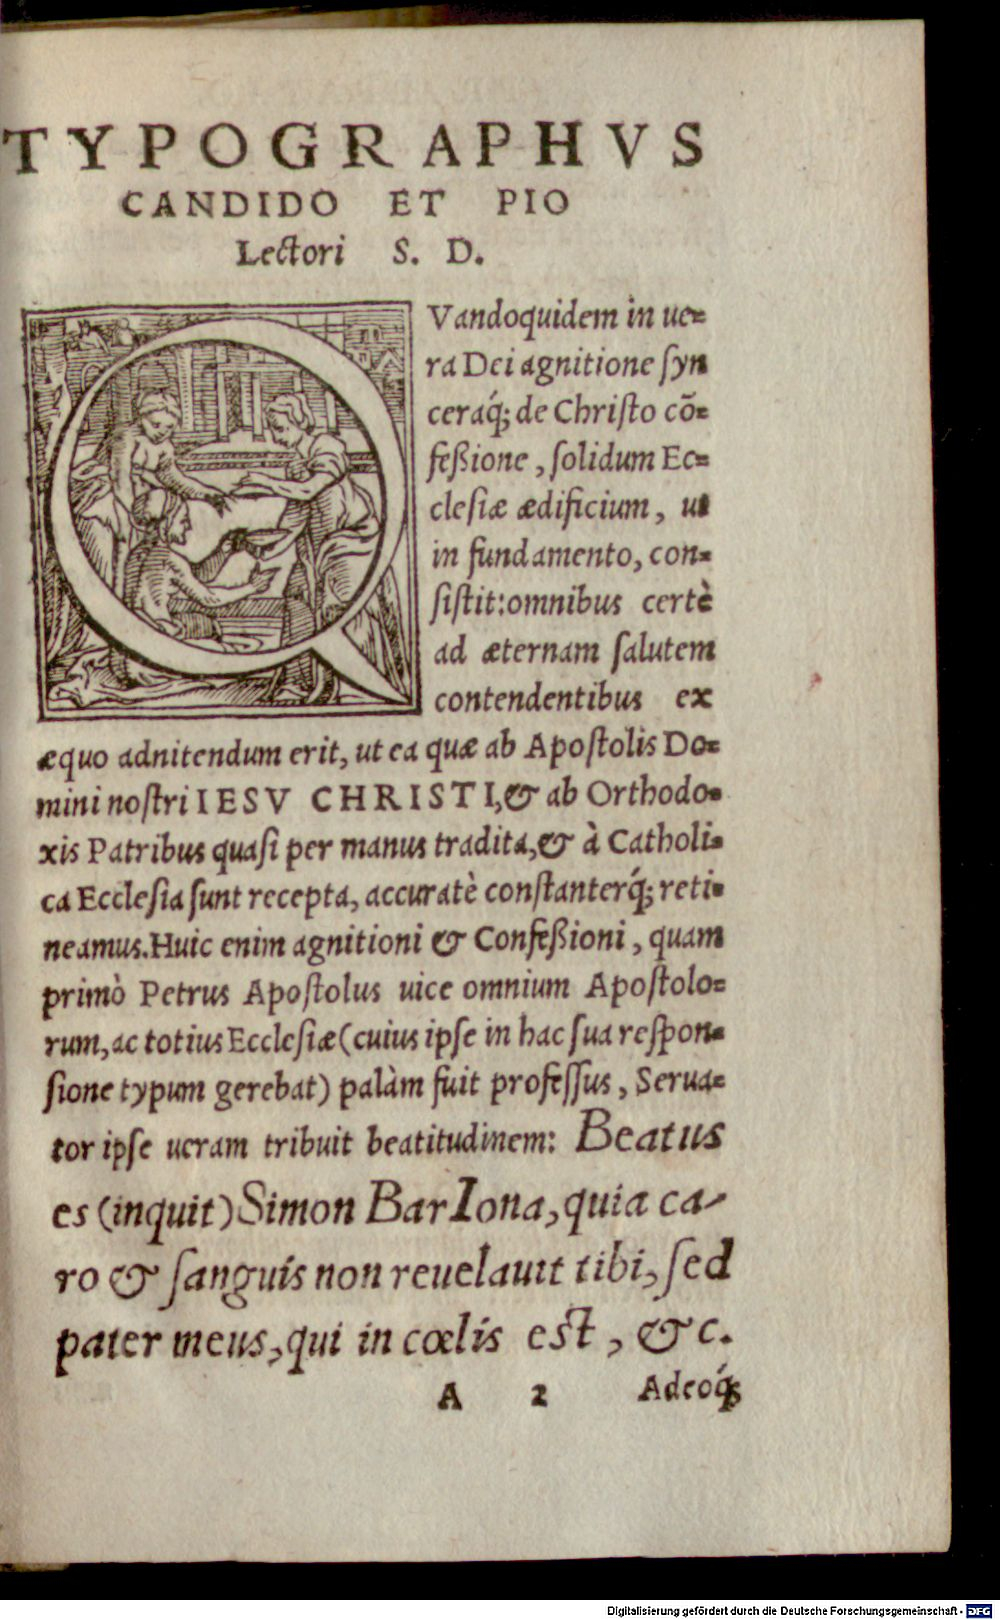 TYPOGRAPHVS
CANDIDO ET PIO
Lectori S. D.
QVandoquidem in ue=
ra Dei agnitione ſyn
ceraq́; de Chriſto cõ=
feßione, ſolidum Ec=
cleſiæ ædificium, ut
in fundamento, con=
ſiſtit: omnibus certè
ad æternam ſalutem
contendentibus ex
æquo adnitendum erit, ut ea quæ ab Apoſtolis Do=
mini noſtri IESV CHRISTI, & ab Orthodo=
xis Patribus quaſi per manus tradita, & à Catholi=
ca Eccleſia ſunt recepta, accuratè conſtanterq́; reti=
neamus. Huic enim agnitioni & Confeßioni, quam
primò Petrus Apoſtolus uice omnium Apoſtolo=
rum, ac totius Eccleſiæ (cuius ipſe in hac ſua reſpon=
ſione typum gerebat) palàm fuit profeſſus, Serua=
tor ipſe ueram tribuit beatitudinem: Beatus
es (inquit) Simon BarIona, quia ca-
ro & ſanguis non reuelauit tibi, ſed
pater meus, qui in cœlis eſt, &c.
A 2 Adeoq́;
Digitalisierung gefördert durch die Deutsche Forschungsgemeinschaft - DFG